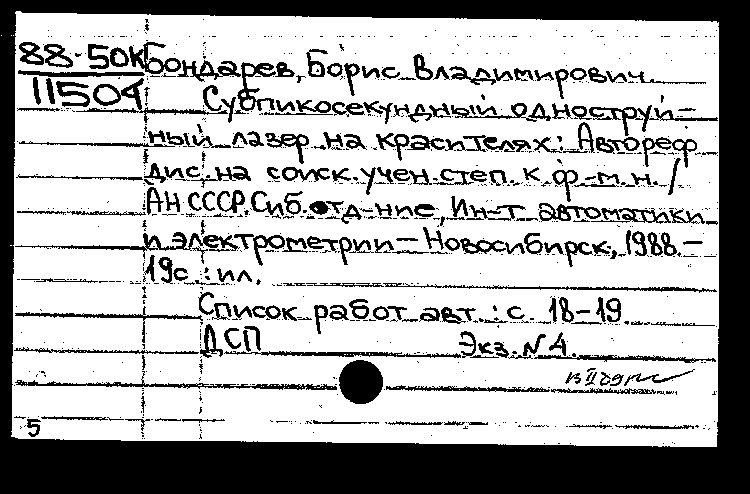 88-50К Бондарев, Борис Владимирович.
11504 Субпикосекундный одноструй-
ный лазер на красителях: Автореф
дис. на соиск. учен. степ. к. ф.-м. н. /
АН СССР. Сиб. отд-ние, Ин-т автоматики
и электрометрии — Новосибирск, 1988. —
19с : ил.
Список работ авт.: с. 18-19.
ДСП Экз. N 4.
5